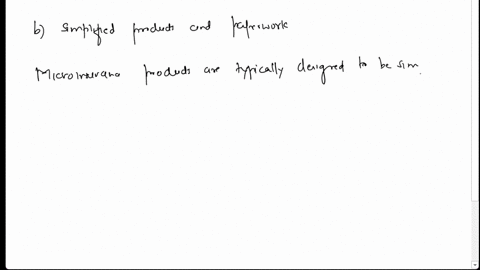 b) Simplified products and paperwork
Microinsurance products are typically designed to be sim